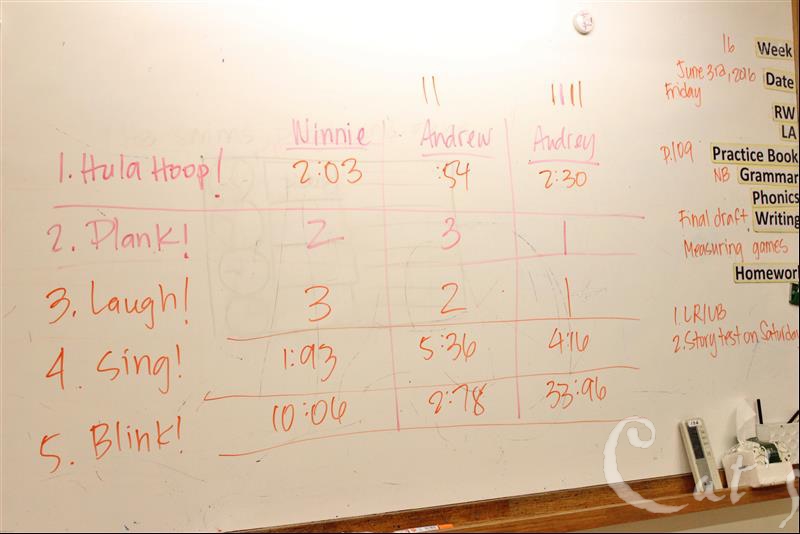 16 Week
June 3rd, 2016 Date
Friday
RW
LA
Winnie Andrew Audrey
p.109 Practice Book
1. Hula Hoop! 2:03 :54 2:30
NB Grammar
Phonics
Final draft Writing
2. Plank! 2 3 1
Measuring games
Homewor
3. Laugh! 3 2 1
1. LR/UB
2. Story test on Saturday
4. Sing! 1:93 5:36 4:16
5. Blink! 10:06 2:78 33:96
Cat's